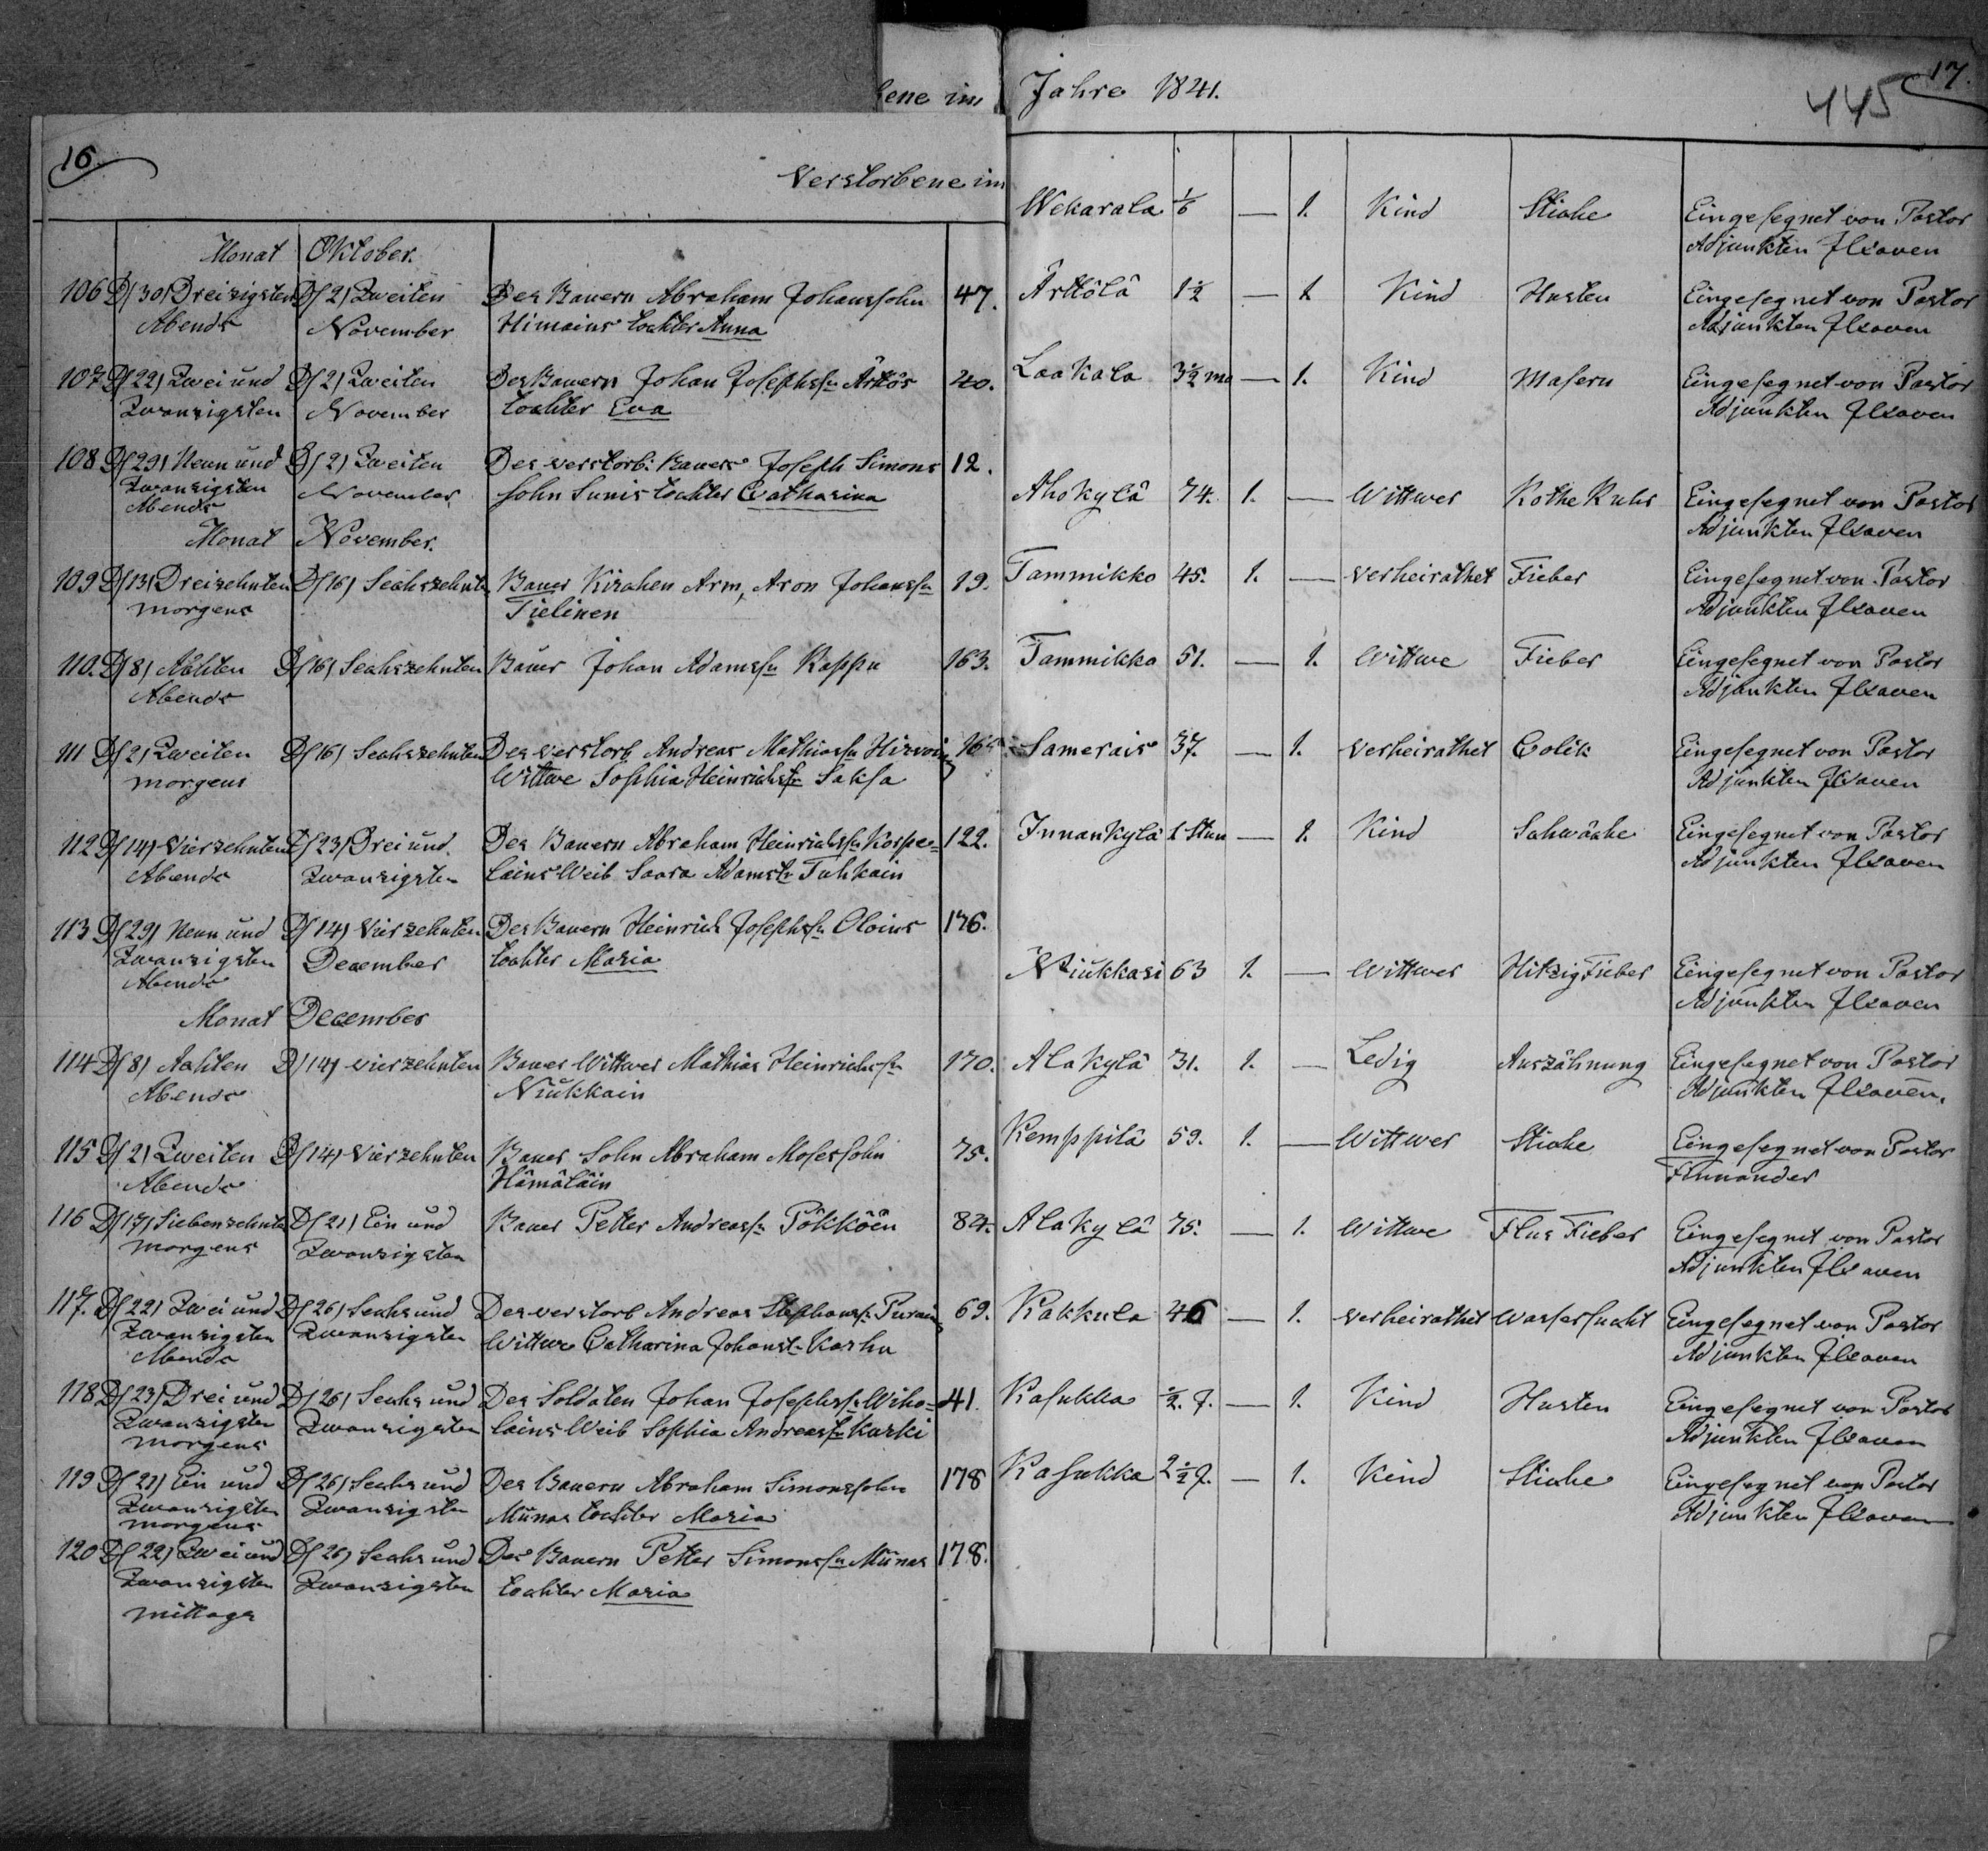 16.
Verstorbene im
Monat Oktober.
106 D/30/ Dreizigsten D/2/ Zweiten Des Bauern Abraham Johanssohn 47.
Abends November Himains tochter Anna
107 D/22/ Zwei und D/2/ Zweiten Des Bauern Johan Josephss: Ärtös 40.
Zwanzigsten November tochter Eva
108 D/29/ Neun und D/2/ Zweiten Des verstorb: Bauers Joseph Simons 12.
Zwanzigsten November sohn Sunis tochter Catharina
Abends
Monat November.
109 D/13/ Dreizehnten D/16/ Sechszehnt Bauer Kirchen Arm, Aron Johanss: 19.
morgens Tielinen
110. D/8/ Achten D/16/ Sechszehnten Bauer Johan Adamss: Kappu 163.
Abends
111 D/2/ Zweiten D/16/ Sechszehnten Des verstorb Andreas Mathiass: Hirvoin 165
morgens Wittwe Sophia Heinrichst: Saksa
112 D/14/ Vierzehnten D/23/ Drei und Des Bauern Abraham Heinrichss: Korpe= 122.
Abends Zwanzigsten lains Weib Saara Adamst: Tuhkain
113 D/29/ Neun und D/14/ Vierzehnten Des Bauern Heinrich Josephss: Oloins 176.
Zwanzigsten December tochter Maria
Abends
Monat December
114 D/8/ Achten D/14/ vierzehnten Bauer Wittwer Mathias Heinrichss: 170.
Abends Niukkain
115 D/2/ Zweiten D/14/ Vierzehnten Bauer Sohn Abraham Mosessohn 75.
Abends Hämäläin
116 D/17/ Siebenzehnten D/21/ Ein und Bauer Petter Andreass: Pökköin 84.
morgens Zwanzigsten
117. D/22/ Zwei und D/26/ Sechs und Des verstorb Andreas Stephanss: Purain 69.
Zwanzigsten Zwanzigsten Wittwe Catharina Johanst: Karhu
Abends
118 D/23/ Drei und D/26/ Sechs und Des Soldaten Johan Josephss: Wiho= 41.
Zwanzigsten Zwanzigsten lains Weib Sophia Andreast: Kurki
morgens
119 D/21/ Ein und D/26/ Sechs und Des Bauern Abraham Simonssohn 178
Zwanzigsten Zwanzigsten Münas tochter Maria
morgens
120 D/22/ Zwei und D/26/ Sechs und Des Bauern Petter Simonss: Münas 178.
Zwanzigsten Zwanzigsten tochter Maria
mittags
bene im Jahre 1841.
445 17.
Wekarala 1/6 — 1. Kind Stiche Eingesegnet von Pastor
Adjunkten Ilsaven
Ärttölä 1½ — 1 Kind Husten Eingesegnet von Pastor
Adjunkten Ilsaven
Laakala 3½ mo — 1. Kind Masern Eingesegnet von Pastor
Adjunkten Ilsaven
Ahokylä 74. 1. — Wittwer Rothe Ruhr Eingesegnet von Pastor
Adjunkten Ilsaven
Tammikko 45. 1. — verheirathet Fieber Eingesegnet von Pastor
Adjunkten Ilsaven
Tammikko 51. — 1. Wittwe Fieber Eingesegnet von Pastor
Adjunkten Ilsaven
Samerais 37. — 1. verheirathet Colik Eingesegnet von Pastor
Adjunkten Ilsaven
Innankylä 1 Stun — 1. Kind Schwäche Eingesegnet von Pastor
Adjunkten Ilsaven
Niukkasi 63 1. — Wittwer Hitzig Fieber Eingesegnet von Pastor
Adjunkten Ilsaven
Alakylä 31. 1. — Ledig Auszähnung Eingesegnet von Pastor
Adjunkten Ilsaven.
Kemppilä 59. 1. — Wittwer Stiche Eingesegnet von Pastor
Finnander
Alakylä 75. — 1. Wittwe Flus Fieber Eingesegnet von Pastor
Adjunkten Ilsaven
Kakkula 46 — 1. verheirathet Wassersucht Eingesegnet von Pastor
Adjunkten Ilsaven
Kasukka ½ J. — 1. Kind Husten Eingesegnet von Pastor
Adjunkten Ilsaven
Kasukka 2½ J. — 1. Kind Stiche Eingesegnet von Pastor
Adjunkten Ilsaven